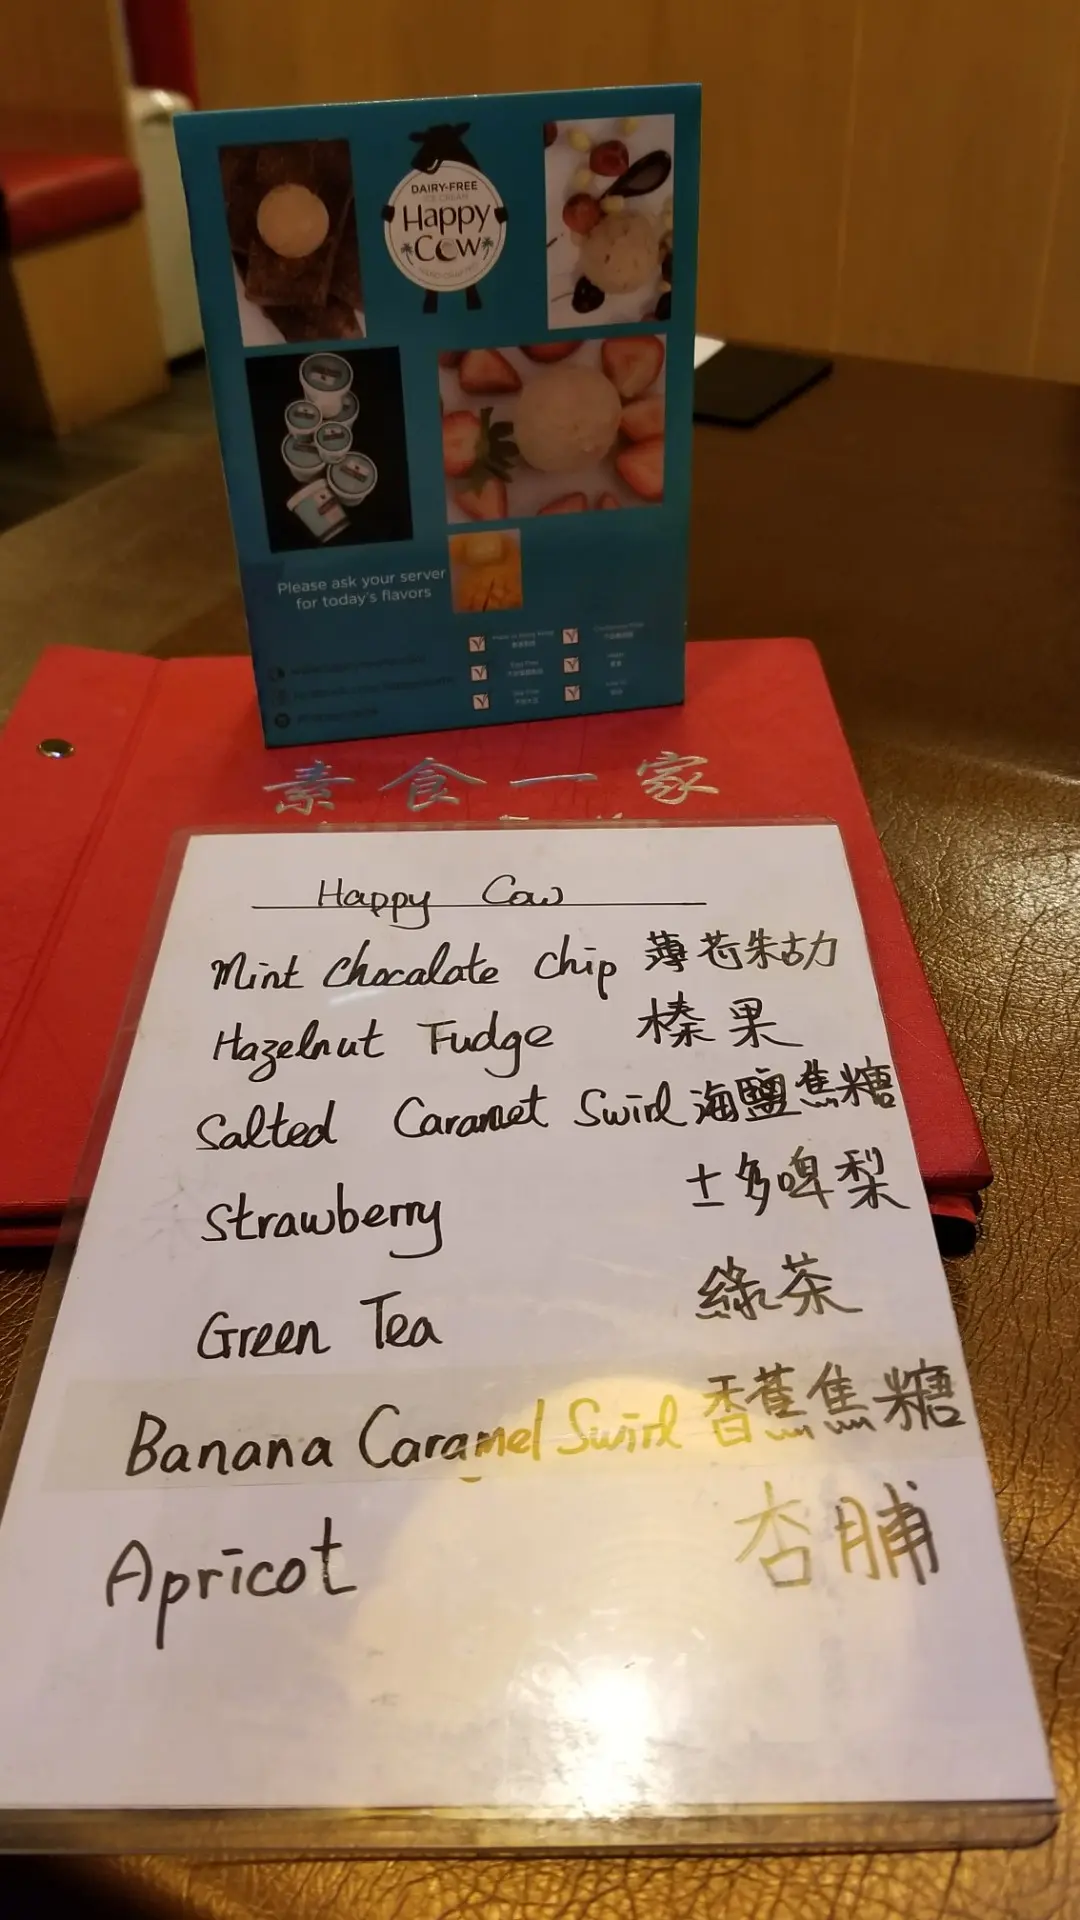 DAIRY-FREE
ICE CREAM
Happy
Cow
Please ask your server
for today's flavors
素食一家
Happy Cow
Mint Chocalate Chip 薄荷朱古力
Hazelnut Fudge 榛果
Salted Caramet Swirl 海鹽焦糖
Strawberry 士多啤梨
Green Tea 綠茶
Banana Caramel Swirl 香蕉焦糖
Apricot 杏脯